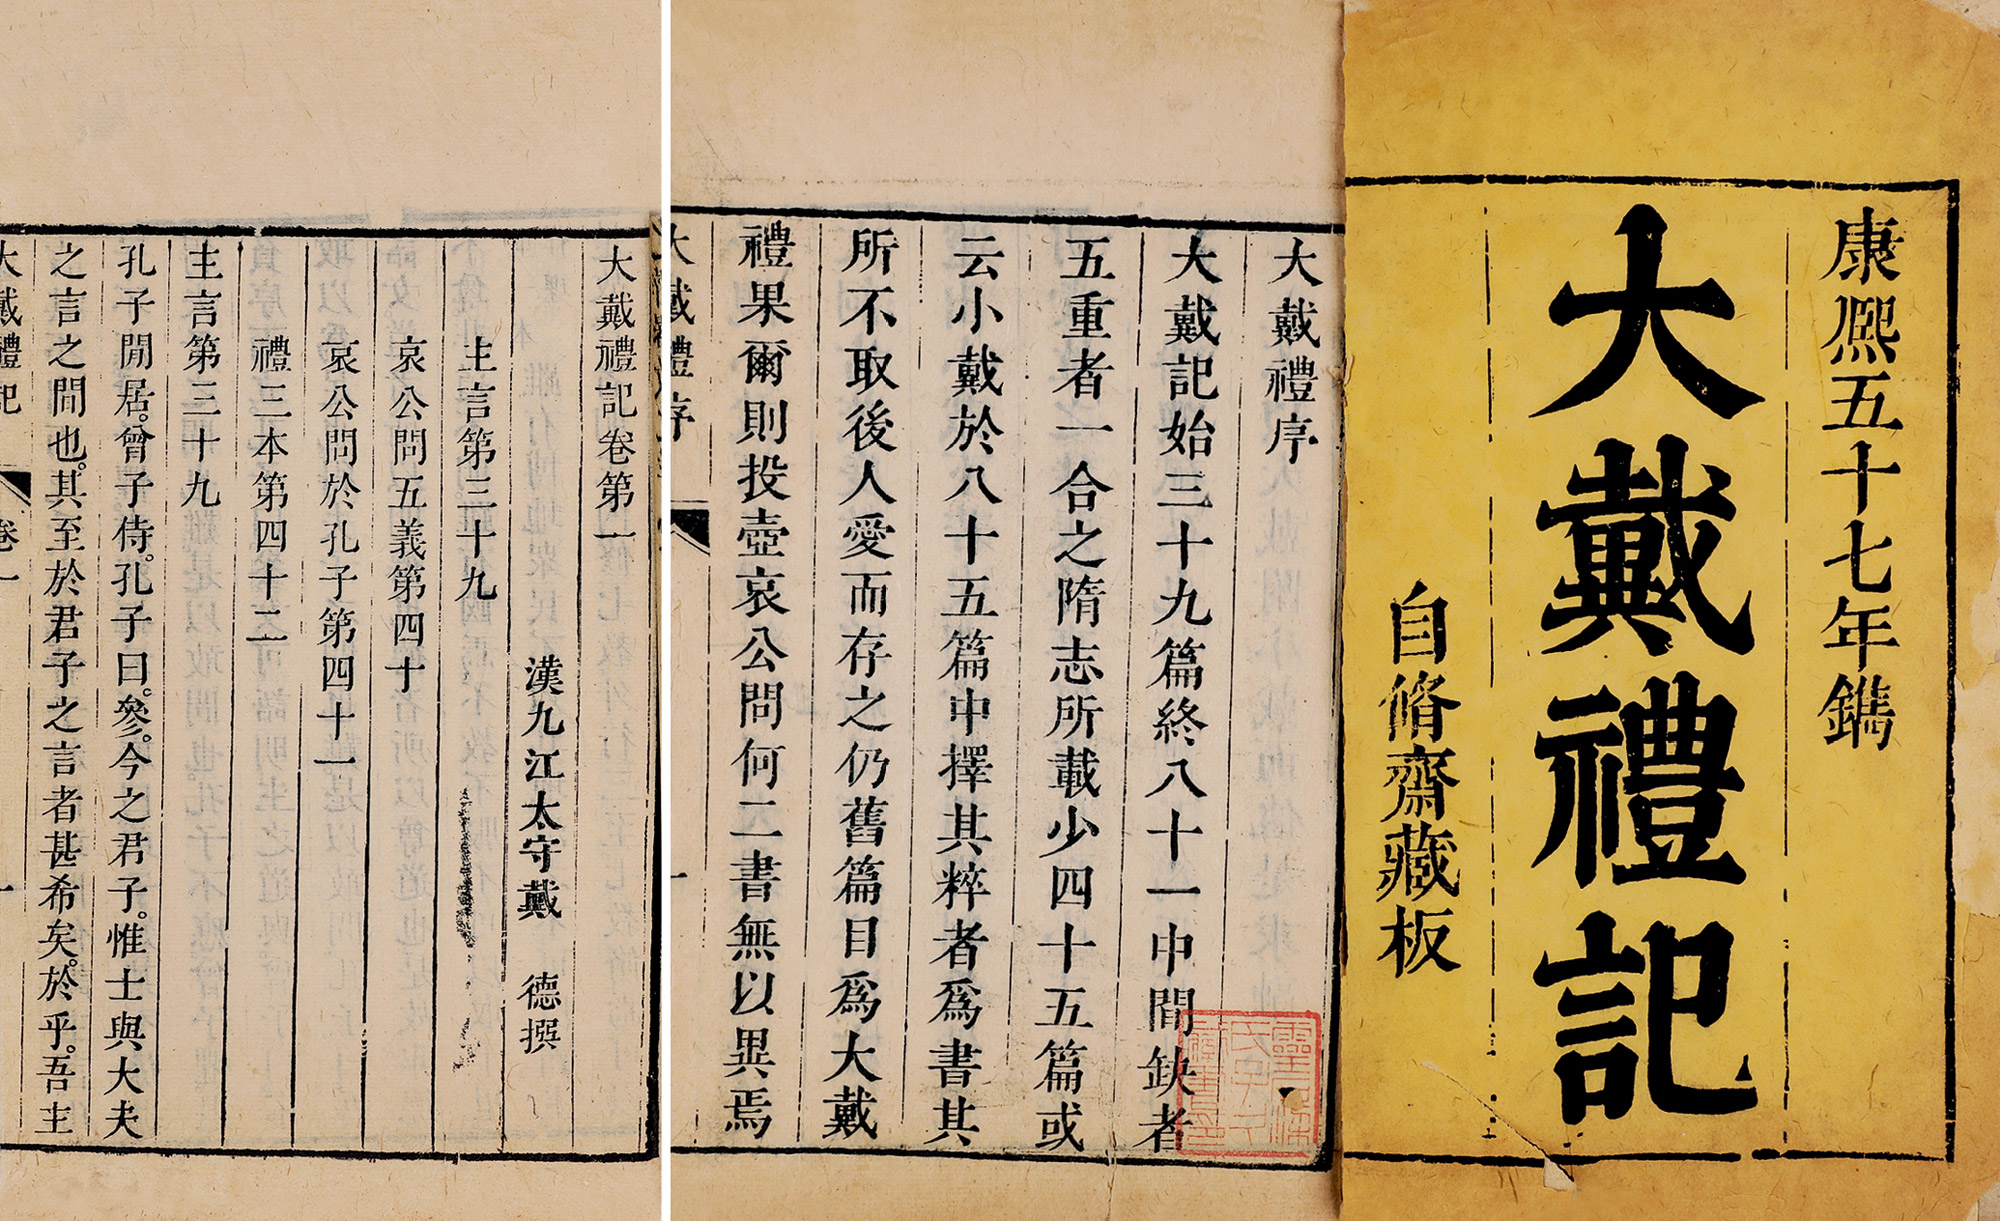 康熙五十七年鐫
大戴禮記
自脩齋藏板
大戴禮序
大戴記始三十九篇終八十一中間缺者
五重者一合之隋志所載少四十五篇或
云小戴於八十五篇中擇其粹者為書其
所不取後人愛而存之仍舊篇目為大戴
禮果爾則投壺哀公問何二書無以異焉
大戴禮序
一
大戴禮記卷第一
漢九江太守戴 德撰
主言第三十九
哀公問五義第四十
哀公問於孔子第四十一
禮三本第四十二
主言第三十九
孔子閒居。曾子侍。孔子曰。參。今之君子。惟士與大夫
之言之間也。其至於君子之言者甚希矣。於乎。吾主
大戴禮記
卷一
一